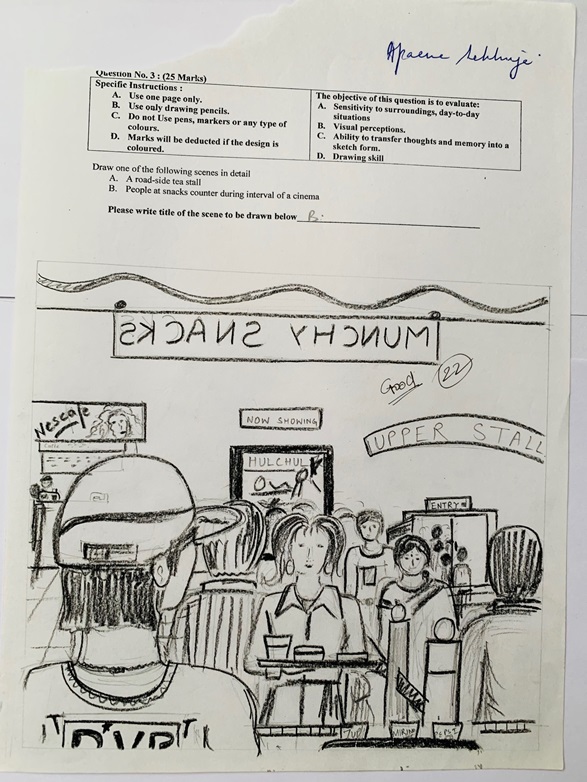 Question No. 3 : (25 Marks)
Specific Instructions :
A. Use one page only.
B. Use only drawing pencils.
C. Do not Use pens, markers or any type of
colours.
D. Marks will be deducted if the design is
coloured.
The objective of this question is to evaluate:
A. Sensitivity to surroundings, day-to-day
situations
B. Visual perceptions.
C. Ability to transfer thoughts and memory into a
sketch form.
D. Drawing skill
Draw one of the following scenes in detail
A. A road-side tea stall
B. People at snacks counter during interval of a cinema
Please write title of the scene to be drawn below B.
MUNCHY SNACKS
Good 22
Nescafe
NOW SHOWING
UPPER STALL
HULCHUL
ENTRY
7UP
MIRINDA
PEPSI